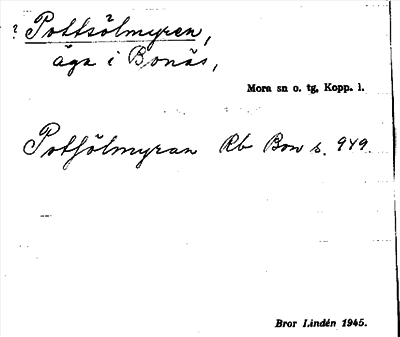 ? Pottsölmyren,
äga i Bonäs,
Mora sn o. tg, Kopp. l.
Potsölmyran Rb Bon s. 949.
Bror Lindén 1945.